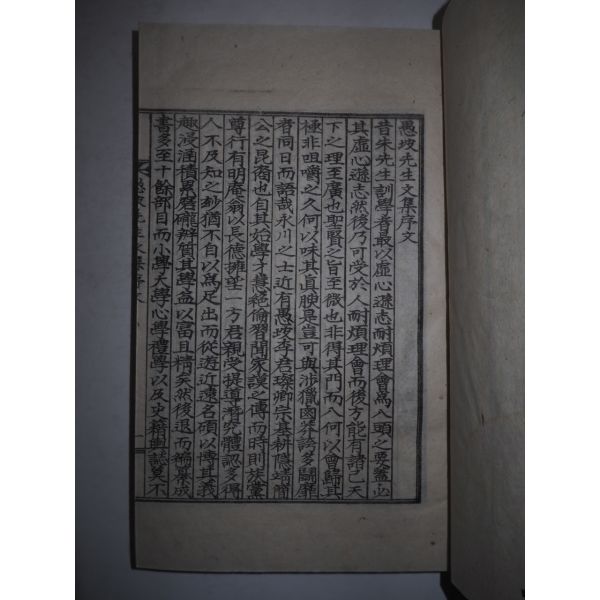 愚坡先生文集序文
昔朱先生訓學者最以虛心遜志耐煩理會爲入頭之要蓋必
其虛心遜志然後乃可受於人耐煩理會而後方能有諸己天
下之理至廣也聖賢之旨至微也非得其門而入何以會歸其
極非咀嚼之久何以味其眞腴是豈可與涉獵鹵莽誇多鬪靡
者同日而語哉永川之士近有愚坡李君璨卿宗基耕隱靖簡
公之昆裔也自其始學才慧絕倫習聞家謨之傳而時則族黨
尊行有明庵翁以長德擁望一方君親受提導潛究體認多得
人不及知之玅猶不自以爲足出而從遊近遠名碩以博其義
趣浸涵積累磨礲辨質其學益以富且精矣然後退而編纂成
書多至十餘部目而小學大學心學禮學以及史籍輿誌莫不
愚坡先生文集序文 一